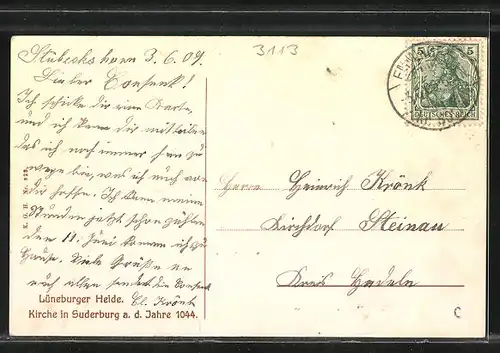 Stübeckshorn 3.6.09.
3113
Lieber Consenk!
Ich schicke dir eine Karte,
und ich kann dir mitteilen
das ich noch immer
wege bin, was ich auch von
dir hoffe. Ich kann meine
Stunden jetzt schon zählen
den 11. Juni komm ich zu
Hause. Viele Grüße an
euch allen sendet die Consenk
Cl. Krönk
Lüneburger Heide.
Kirche in Suderburg a. d. Jahre 1044.
5 5
DEUTSCHES REICH
Herrn Heinrich Krönk
Kirchdorf Steinau
Kreis Hadeln
C